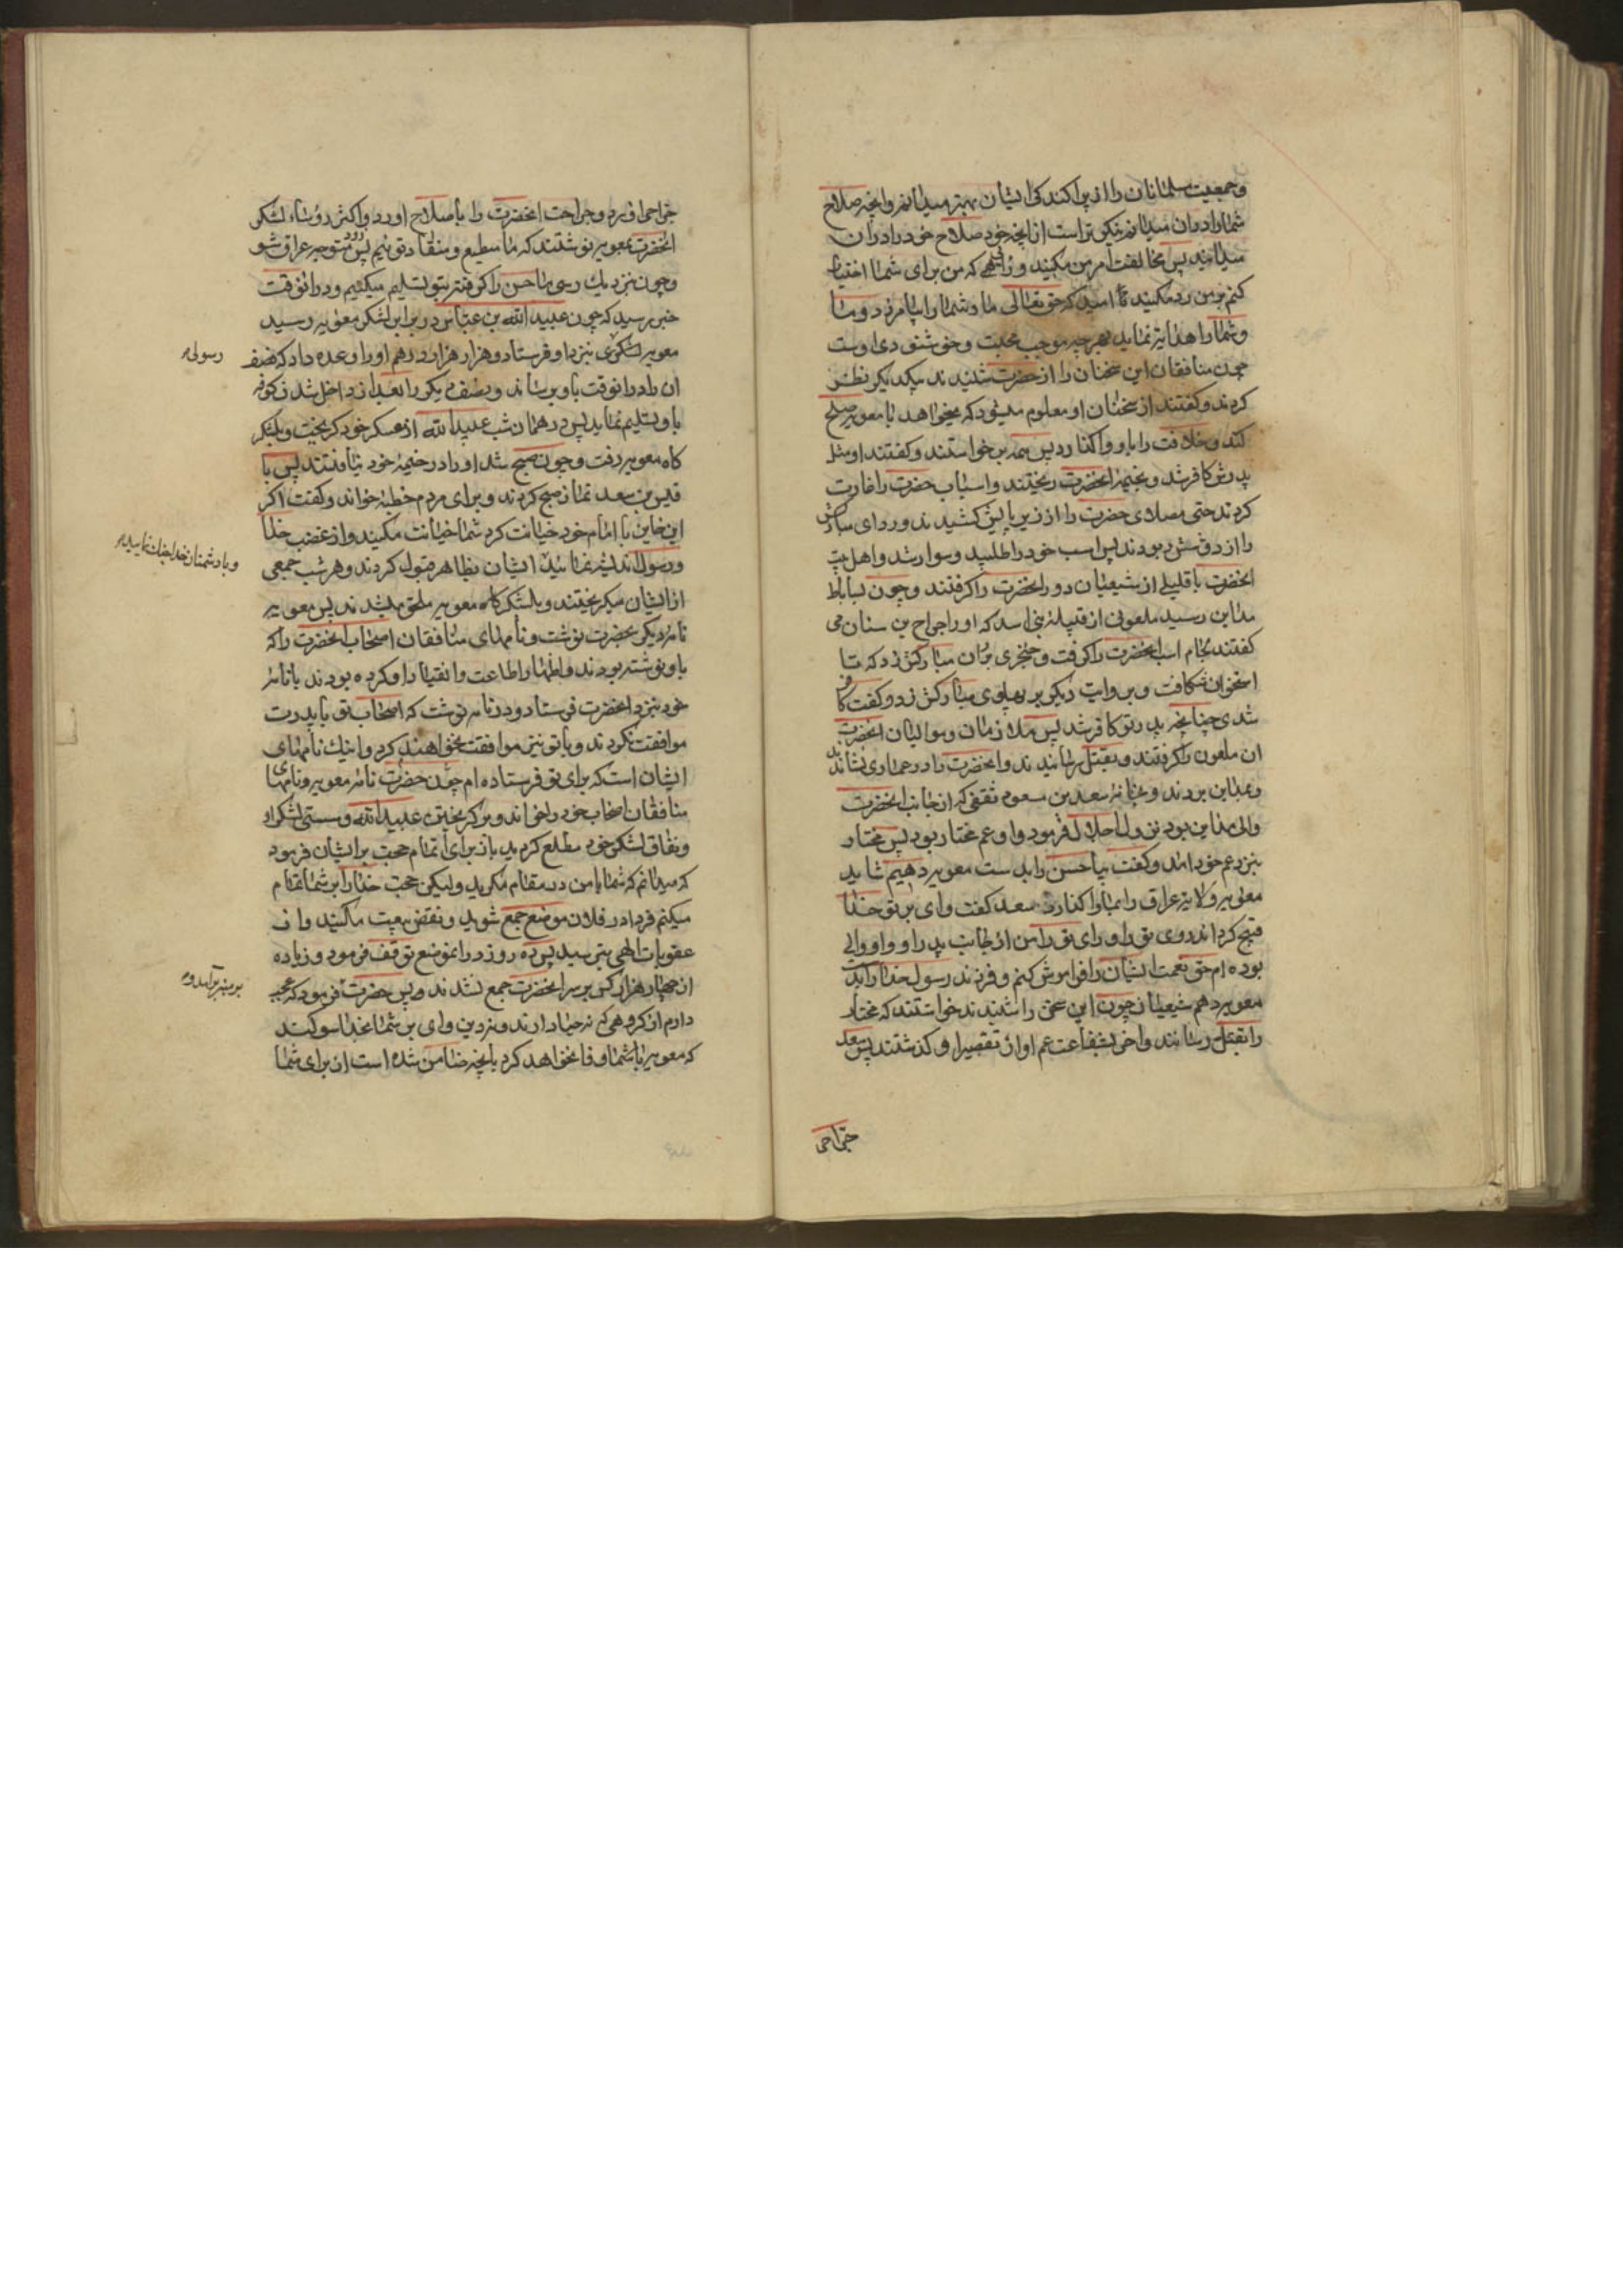 وجمعیت مسلمانان را از پراکندکی ایشان بهتر میدانم وانچه صلاح
شما را دران میدانم نیکوتر است از انچه خود صلاح خود را دران
میدانید پس مخالفت امر من مکنید و رائیی که من برای شما اختیار
کنم بر من رد مکنید تا امید که حق تعالی ما و شما را بیامرزد و ما
وشما را هدایت نماید بهر چه موجب محبت و خوشنودی اوست
چون منافقان این سخنان را از حضرت شنیدند بیکدیکر نظر
کردند وکفتند از سخنان او معلوم میشود که میخواهد با معویه صلح
کند و خلافت را باو واکذارد پس همه برخواستند وکفتند او مثل
پدرش کافر شد و بخیمه انحضرت ریختند واسباب حضرت را غارت
کردند حتی مصلای حضرت را از زیر پایش کشیدند و ردای مبارکش
را از دوشش ربودند پس اسب خود را طلبید وسوار شد و اهل بیت
انحضرت با قلیلی از شیعیان دور انحضرت را کرفتند و چون بساباط
مداین رسید ملعونی از قبیله بنی اسد که او را جراح بن سنان می
کفتند لجام اسب انحضرت را کرفت و خنجری بر ران مبارکش زد که تا
استخوان شکافت و بروایت دیکر بر پهلوی مبارکش زد و کفت کافر
شدی چنانچه پدرت کافر شد پس ملازمان و موالیان انحضرت
ان ملعون را کرفتند و بقتل رسانیدند و انحضرت را در عماری نشاندند
وبمداین بردند و بخانه سعد بن مسعود ثقفی که از جانب انحضرت
والی مداین بود نزول اجلال فرمود و او عم مختار بود پس مختار
بنزد عم خود امد وکفت بیا حسن را بدست معویه دهیم شاید
معویه ولایت عراق را بما واکذارد سعد کفت وای بر تو خدا
قبیح کرداند روی تو را و رای تو را من از جانب پدر او و او والی
بوده ام حق نعمت ایشان را فراموش کنم و فرزند رسول خدا را بدست
معویه دهم شیعیان چون این سخن را شنیدند خواستند که مختار
را بقتل رسانند واخر بشفاعت عم او از تقصیر او کذشتند پس سعد
جراحی
جراحی اورد و جراحت انحضرت را باصلاح اورد و اکثر رؤساء لشکر
انحضرت بمعویه نوشتند که ما مطیع و منقاد توئیم پس زود متوجه عراق شو
وچون نزدیک رسی ما حسن را کرفته بتو تسلیم میکنیم ودرانوقت
خبر رسید که چون عبید الله بن عباس در برابر لشکر معویه رسید
معویه لشکری نزد او فرستاد و هزار هزار درهم او را وعده داد که نصف
رسولی
ان را درانوقت باو برساند و نصف دیکر را بعد از داخل شدن کوفه
باو تسلیم نماید پس در همان شب عبید الله از معسکر خود کریخت و بلشکر
کاه معویه رفت و چون صبح شد او را در خیمه خود نیافتند پس با
قیس بن سعد نماز صبح کردند و برای مردم خطبه خواند وکفت اکر
این خاین با امام خود خیانت کرد شما خیانت مکنید و از غضب خدا
ورسول اندیشه نمائید ایشان بظاهر قبول کردند وهر شب جمعی
وبا دشمنان خدا جنک نمایید
از ایشان میکریختند و بلشکر کاه معویه ملحق میشدند پس معویه
نامه دیکر بحضرت نوشت و نامهای منافقان اصحاب انحضرت را که
باو نوشته بودند و اظهار اطاعت و انقیاد او کرده بودند با نامه
خود بنزد انحضرت فرستاد و در نامه نوشت که اصحاب تو با پدرت
موافقت نکردند و با تو نیز موافقت نخواهند کرد و اینک نامهای
ایشان است که برای تو فرستاده ام چون حضرت نامه معویه و نامهای
منافقان اصحاب خود را خواند و بر کریختن عبیدالله و سستی لشکر او
ونفاق لشکر خود مطلع کردید باز برای اتمام حجت بر ایشان فرمود
که میدانم که شما با من در مقام مکرید و لیکن حجت خدا را بر شما تمام
میکنم فردا در فلان موضع جمع شوید و نقض بیعت مکنید و از
عقوبات الهی بترسید پس ده روز در انموضع توقف فرمود و زیاده
از چهار هزار کس بر سر انحضرت جمع نشدند و پس حضرت فرمود که عجب
بر منبر برآمد و
دارم از کروهی که نه حیا دارند و نه دین وای بر شما بخدا سوکند
که معویه با شما وفا نخواهد کرد بانچه ضامن شده است از برای شما